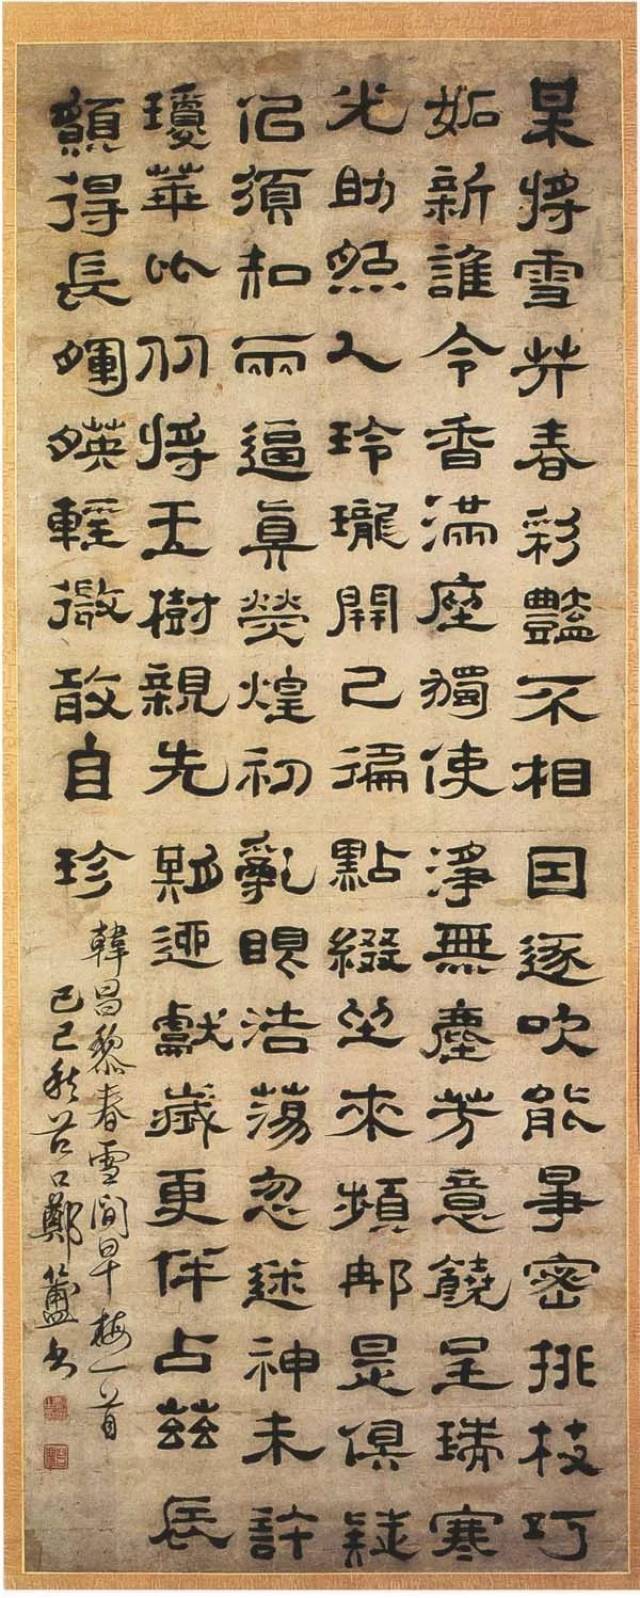 某將雪共春彩豔不相因逐吹能爭密排枝巧
妬新誰令香滿座獨使淨無塵芳意饒呈瑞寒
光助照人玲瓏開已徧點綴坐來頻那是俱疑
佀須知兩逼真熒煌初亂眼浩蕩忽迷神未許
瓊華比从將玉樹親先期迎獻歲更伴占茲辰
願得長暉暎輕微敢自珍
韓昌黎春雪間早梅一首
己巳秋谷口鄭簠書